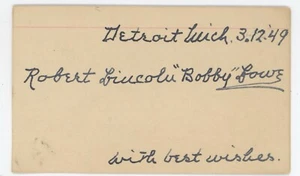 Detroit Mich. 3.12.'49
Robert Lincoln "Bobby" Lowe
with best wishes.